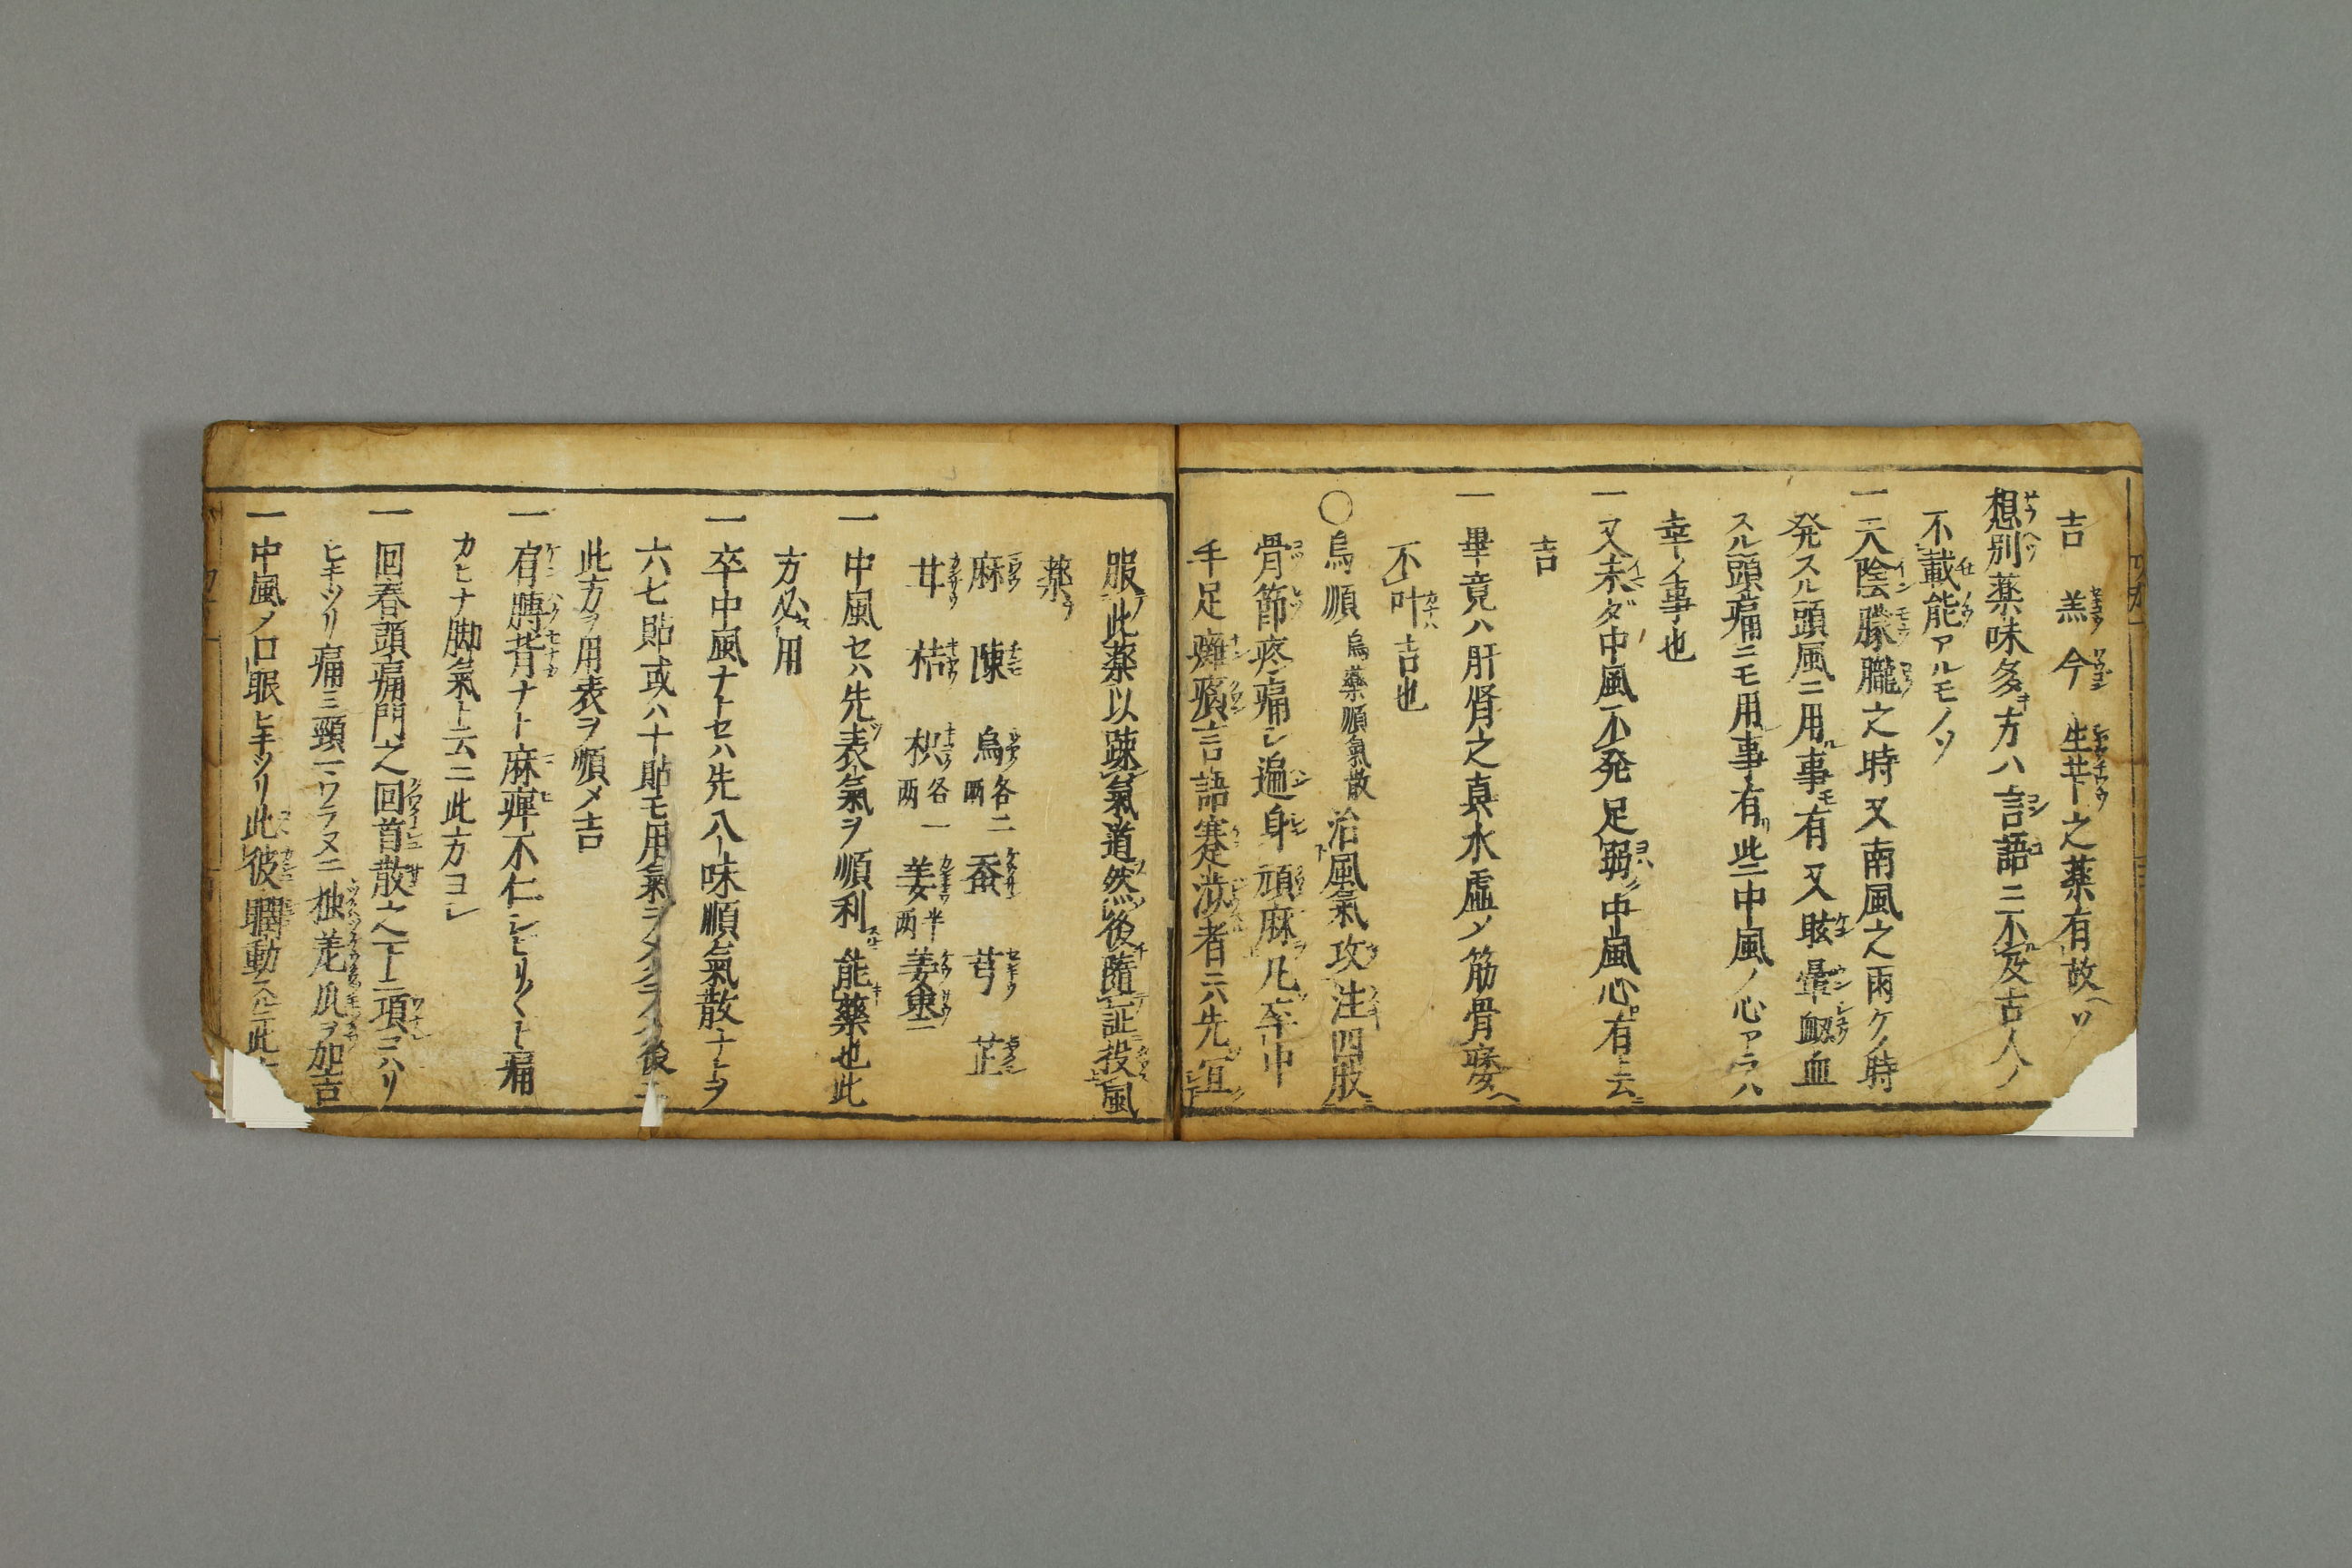 吉 羔 今 生芐之薬有故ソ
想別薬味多方ハ言語ニ不及古人ノ
不載能アルモノソ
一天陰朦朧之時又南風之雨ケノ時
発スル頭風ニ用事有又眩暈衂血
スル頭痛ニモ用事有些中風ノ心アラハ
幸ノ事也
一又未ダ中風不発足弱中風心有云
吉
一畢竟ハ肝腎之真水虚ノ筋骨痿
不叶吉也
○烏順 烏薬順氣散 治風氣攻注四肢
骨節疼痛シ遍身頑麻凡卒中
手足癱瘓言語蹇渋者ニ六先宜
服此薬以疎氣道然後随証投風
薬
麻 陳 烏各二両 蚕 芎 芷
甘 桔 枳各一両 姜半両 姜棗
一中風セハ先表氣ヲ順利 能薬也此
方必用
一卒中風ナトセハ先八味順氣散ナトヲ
六七貼或ハ十貼モ用氣ヲ 後ニ
此方ヲ用表ヲ順メ吉
一有膊背ナト麻痺不仁シヒリ〱ト痛
カヒナ脚氣ト云ニ此方ヨシ
一回春頭痛門之回首散之下ニ項コハリ
ヒキツリ痛ニ頸マワラヌニ独羌瓜ヲ加吉
一中風ノ口眼ヒキツリ此彼瞤動スルニ此